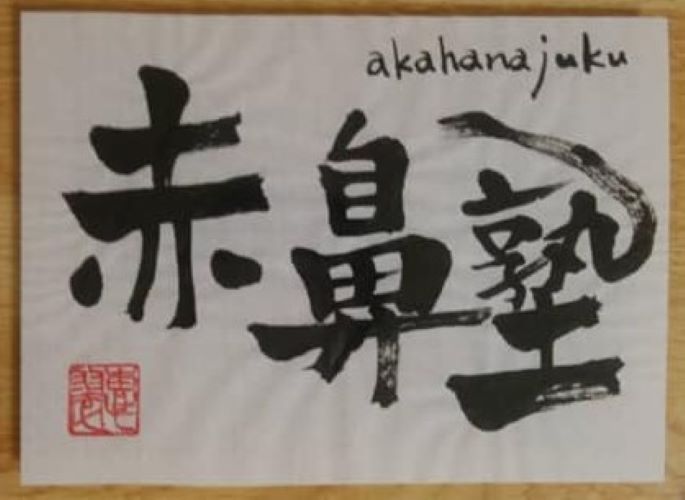 akahanajuku
赤鼻塾